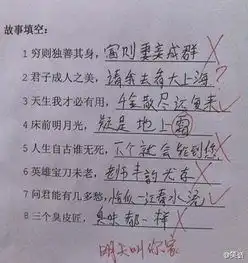 故事填空:
1 穷则独善其身,富则妻妾成群
2 君子成人之美,请你去看大上海?
3 天生我才必有用,千金散尽还复来
4 床前明月光,疑是地上霜
5 人生自古谁无死,下个就会轮到你
6 英雄宝刀未老,老娘丰韵犹存
7 问君能有几多愁,恰似一江春水流
8 三个臭皮匠,臭味都一样
明天叫你家